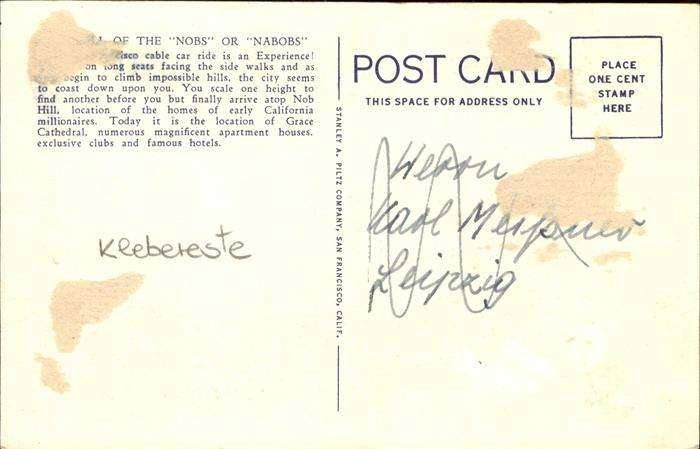 OF THE "NOBS" OR "NABOBS"
cisco cable car ride is an Experience!
on long seats facing the side walks and as
begin to climb impossible hills, the city seems
to coast down upon you. You scale one height to
find another before you but finally arrive atop Nob
Hill, location of the homes of early California
millionaires. Today it is the location of Grace
Cathedral, numerous magnificent apartment houses.
exclusive clubs and famous hotels.
Klebereste
STANLEY A. PILTZ COMPANY, SAN FRANCISCO, CALIF.
POST CARD
THIS SPACE FOR ADDRESS ONLY
PLACE
ONE CENT
STAMP
HERE
Herrn
Karl Meißner
Leipzig